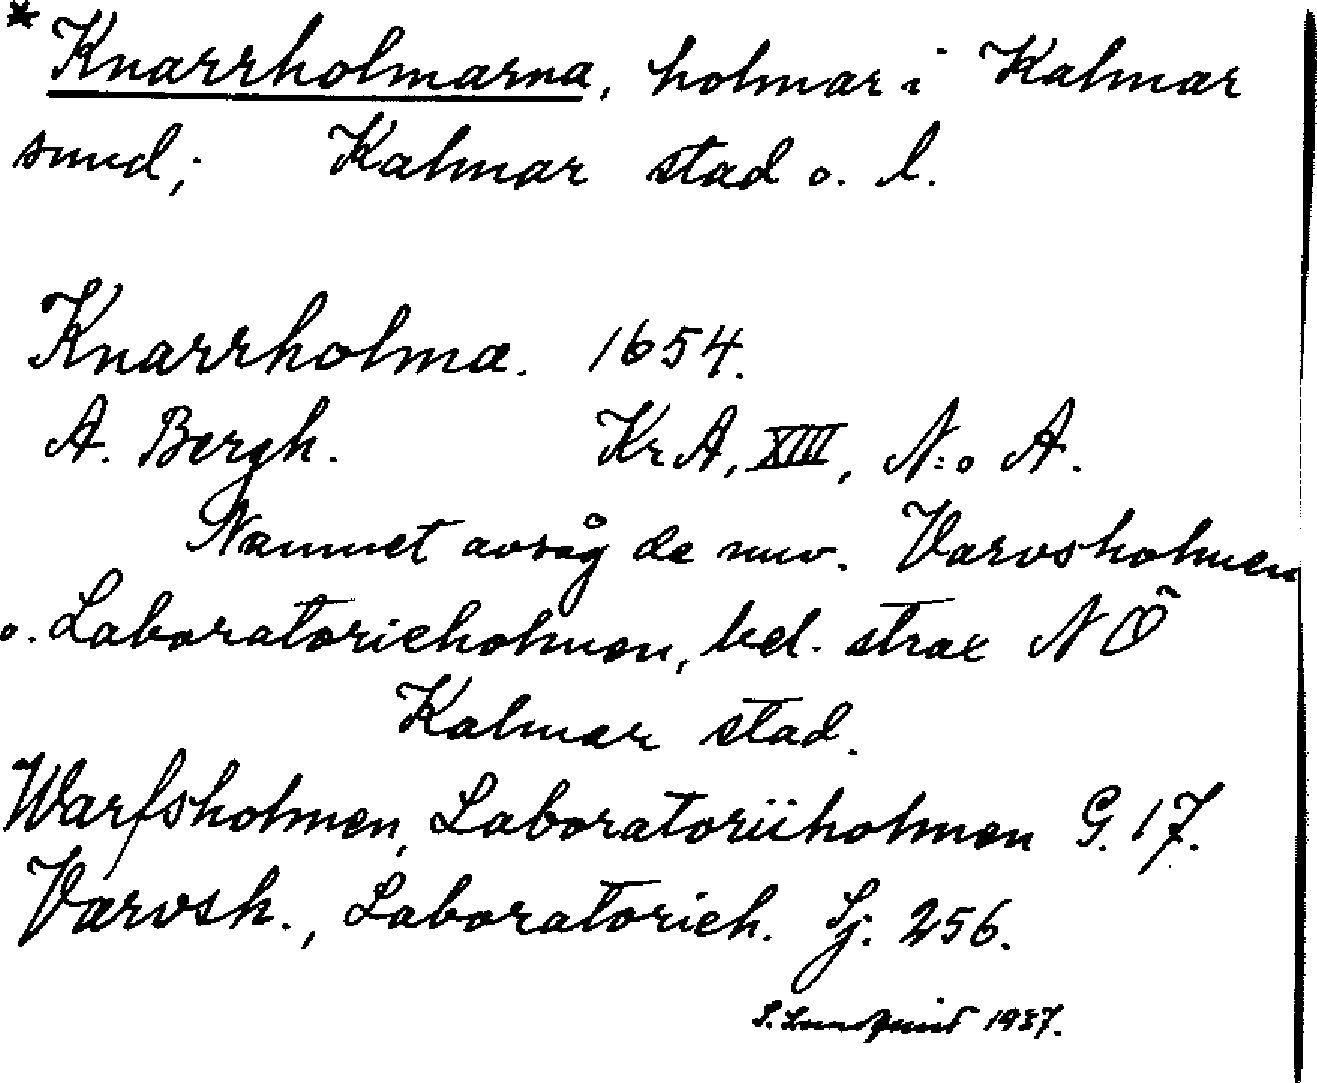 * Knarrholmarna, holmar i Kalmar
sund; Kalmar stad o. l.
Knarrholma. 1654.
A. Bergh. KrA, XIII, N:o A.
Namnet avsåg de nuv. Varvsholmen
o. Laboratorieholmen, bel. strax NÖ
Kalmar stad.
Warfsholmen, Laboratoriiholmen G. 17.
Varvsh., Laboratorieh. Sj. 256.
S. Lundquist 1937.